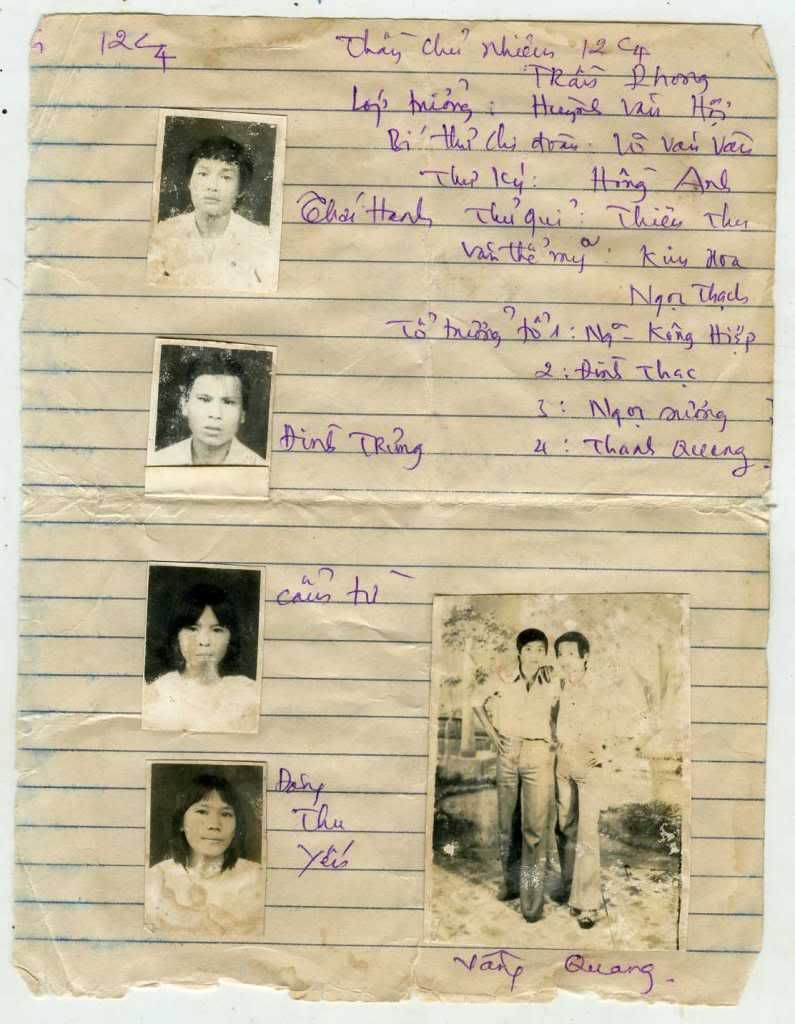 12C4
Thầy chủ nhiệm 12C4
Trần Phong
Lớp trưởng: Huỳnh Văn Hội
Bí thư chi đoàn: Võ Văn Vân
Thư ký: Hồng Anh
Thái Hạnh
Thủ quĩ: Thiên Thu
Văn thể mỹ: Kim Hoa
Ngọc Thạch
Tổ trưởng tổ 1: Ng~ Kông Hiệp
2: Đình Thạc
3: Ngọc Sương
Đình Trưng
4: Thanh Quang.
Cẩm Tú
Đặng
Thu
Yến
Quang.